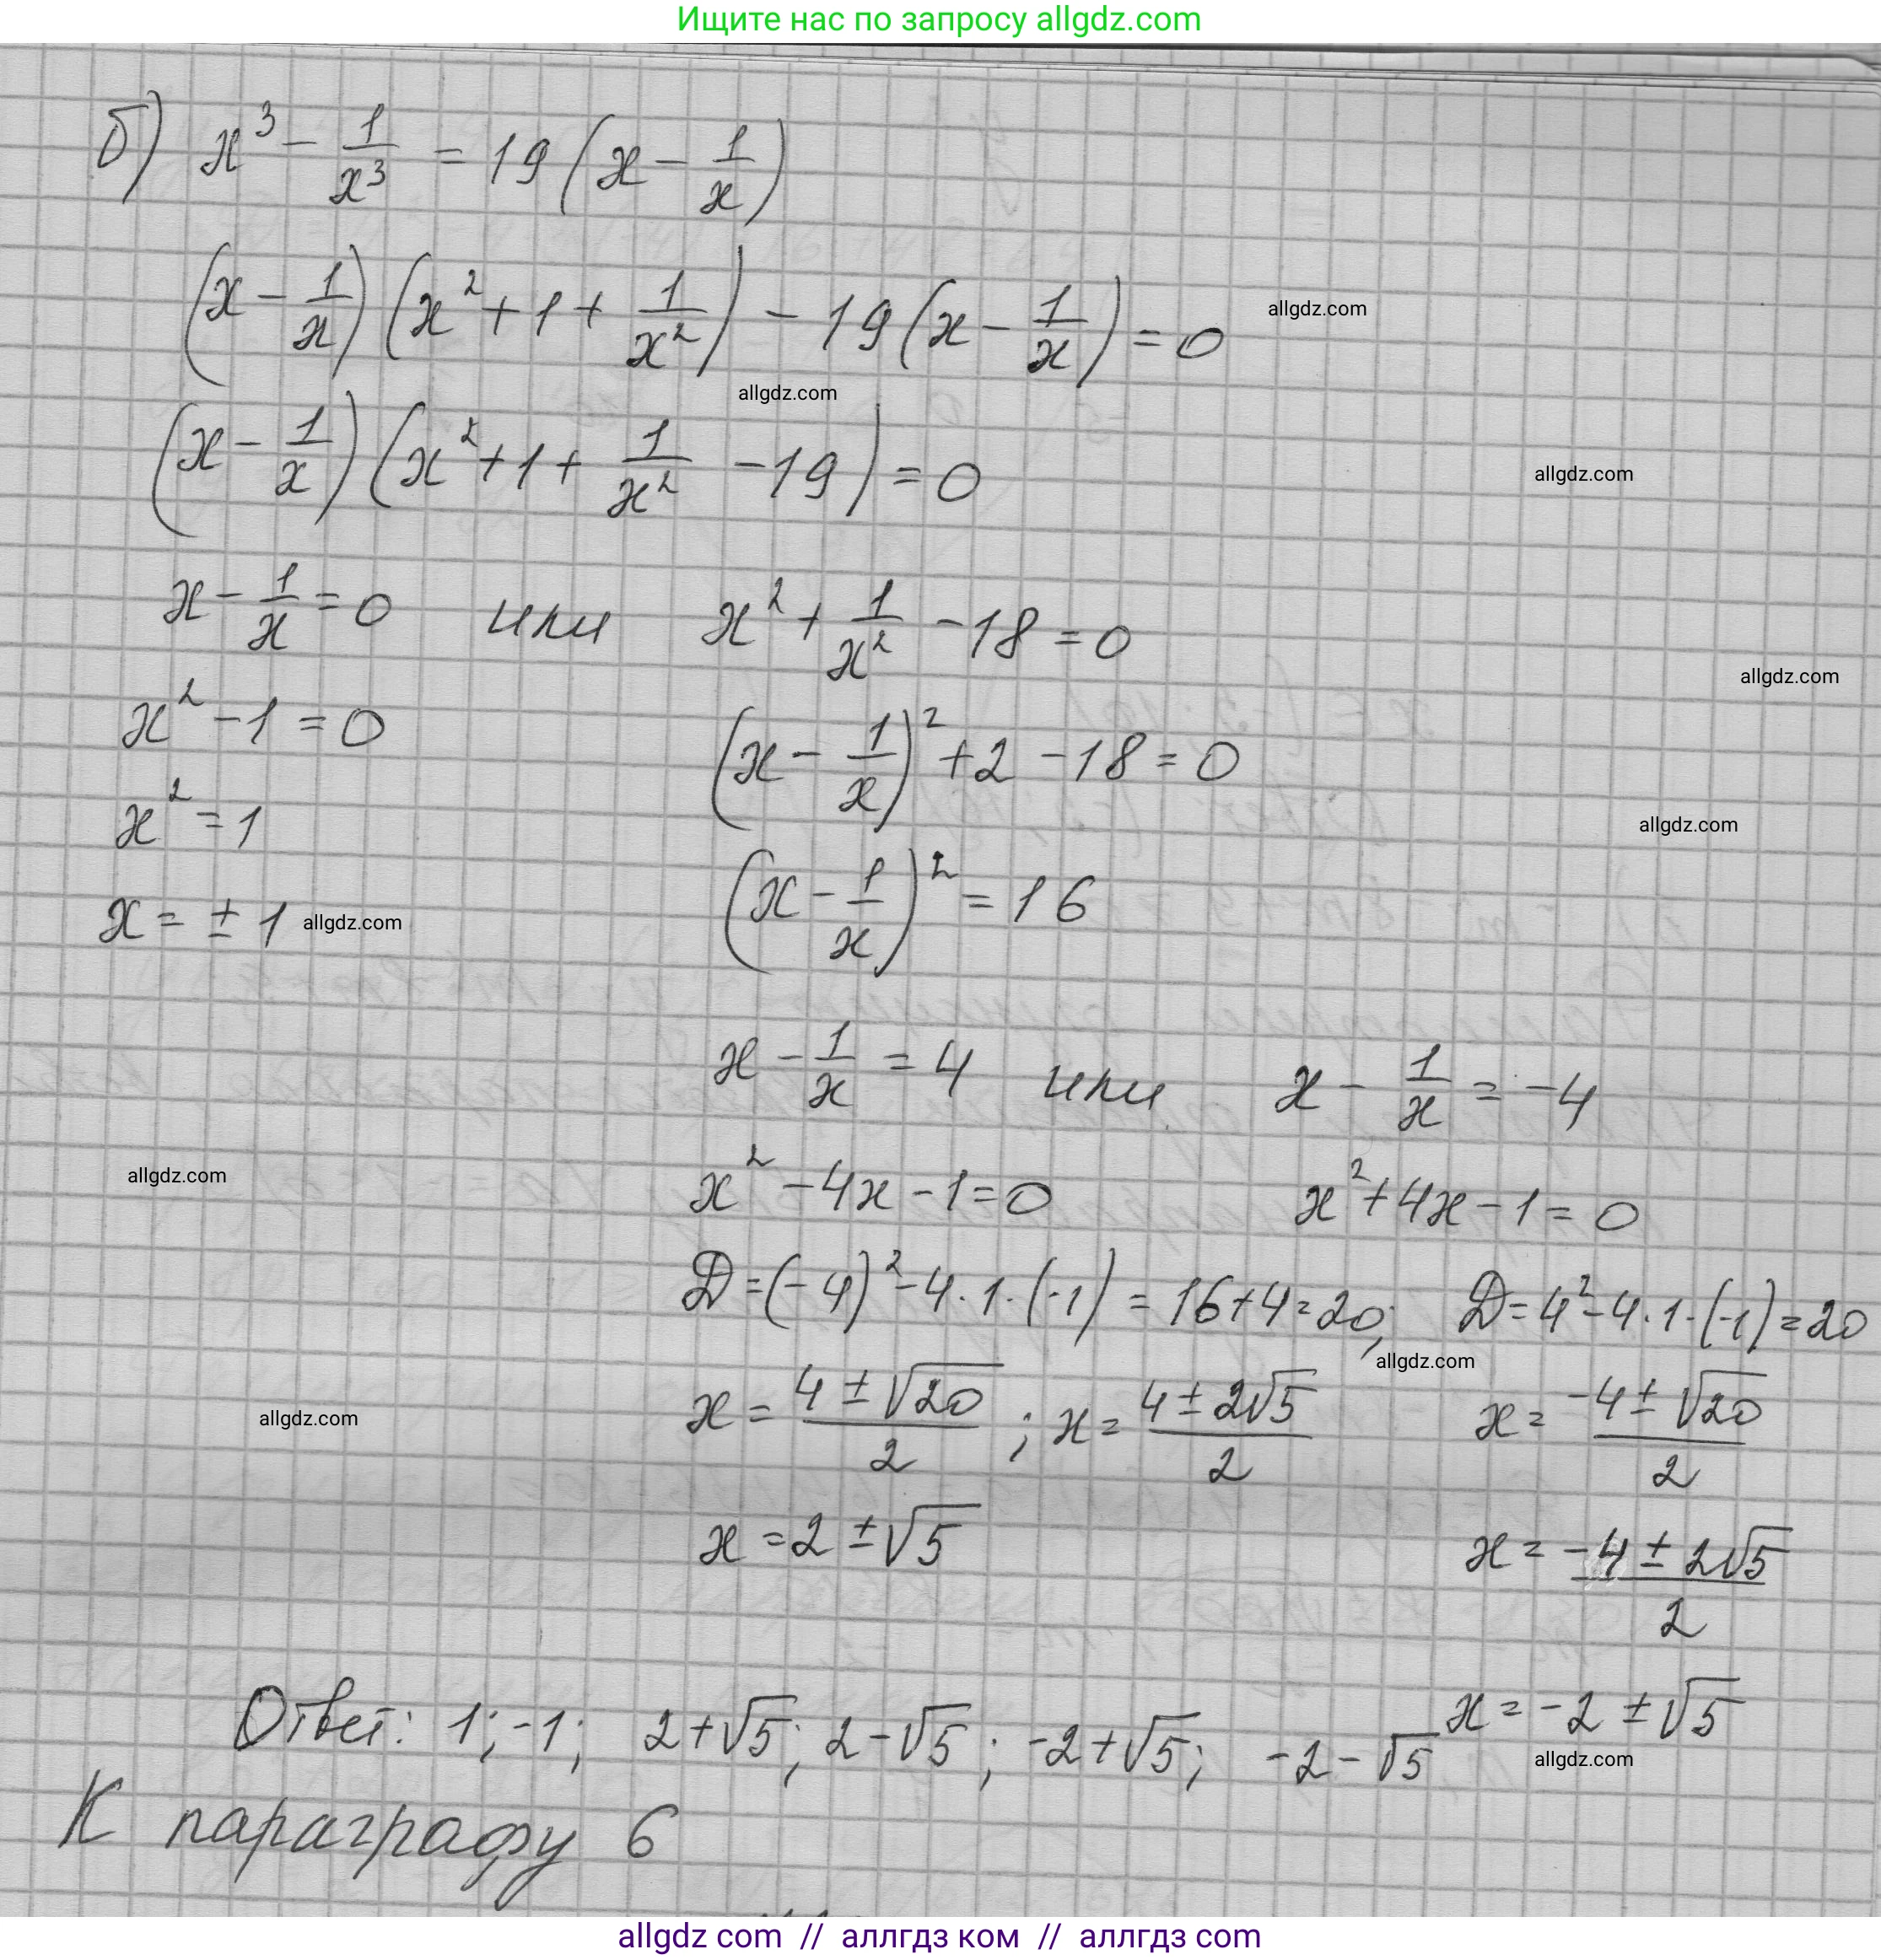 Ищите нас по запросу allgdz.com
б) x³ - 1/x³ = 19(x - 1/x)
(x - 1/x)(x² + 1 + 1/x²) - 19(x - 1/x) = 0
allgdz.com
allgdz.com
(x - 1/x)(x² + 1 + 1/x² - 19) = 0
allgdz.com
x - 1/x = 0 или x² + 1/x² - 18 = 0
allgdz.com
x² - 1 = 0 (x - 1/x)² + 2 - 18 = 0
x² = 1
allgdz.com
x = ± 1 allgdz.com (x - 1/x)² = 16
x - 1/x = 4 или x - 1/x = -4
allgdz.com
x² - 4x - 1 = 0 x² + 4x - 1 = 0
D = (-4)² - 4·1·(-1) = 16 + 4 = 20; D = 4² - 4·1·(-1) = 20
allgdz.com
allgdz.com
x = (4 ± √20)/2 ; x = (4 ± 2√5)/2 x = (-4 ± √20)/2
x = 2 ± √5 x = (-4 ± 2√5)/2
x = -2 ± √5
Ответ: 1; -1; 2+√5; 2-√5; -2+√5; -2-√5
allgdz.com
К параграфу 6
allgdz com // аллгдз ком // аллгдз com